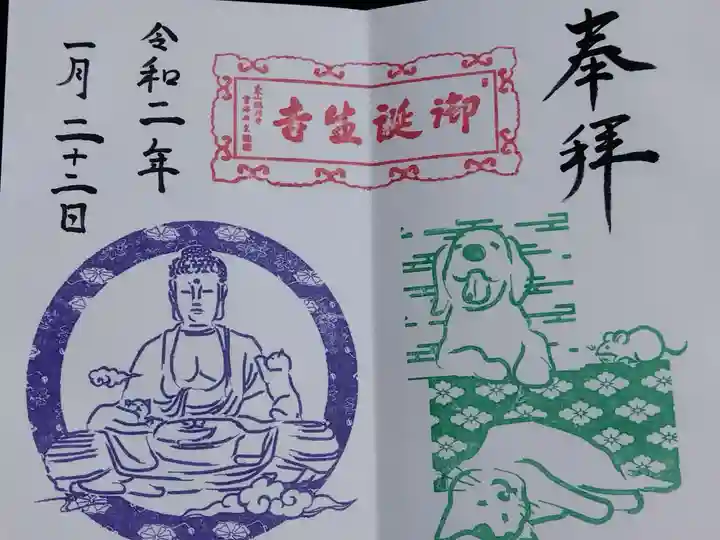 奉拝
御誕生吉
令和二年
一月二十二日